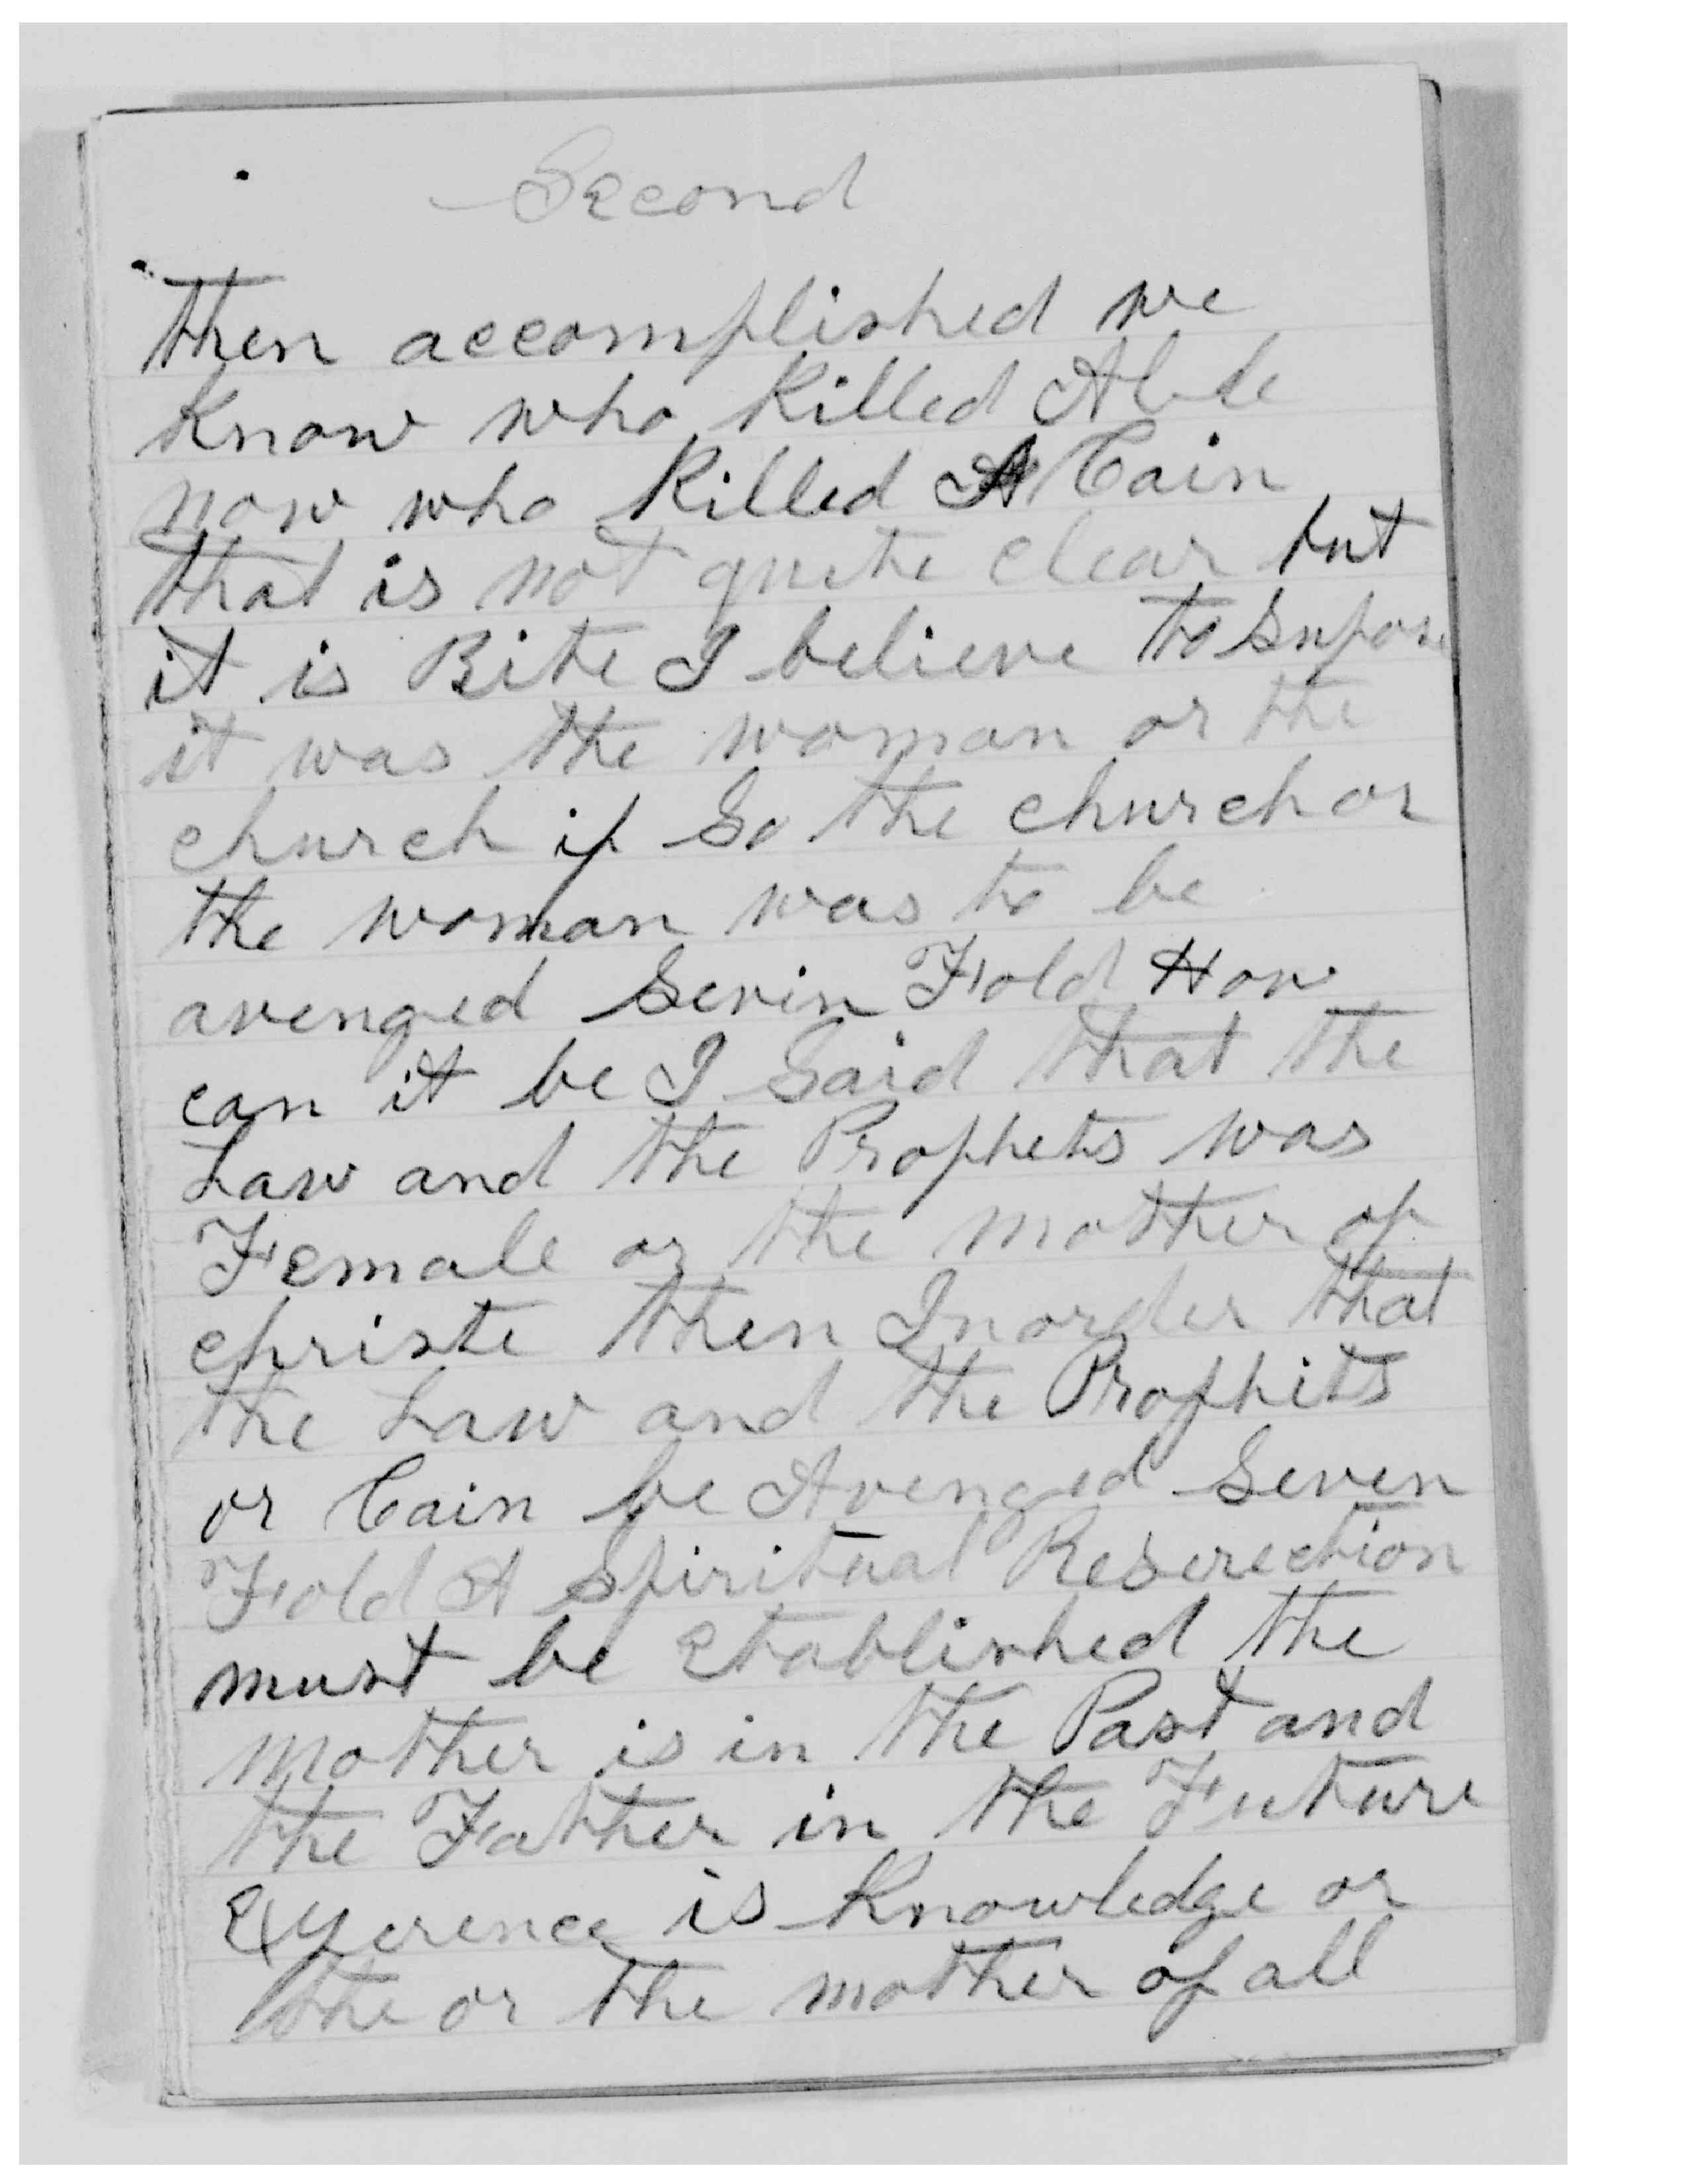 Second
then accomplished we
Know who Killed Able
now who Killed A Cain
that is not quite clear but
it is Bite I believe to supose
it was the woman or the
church if So the church or
the woman was to be
avenged Sevin Fold How
can it be I Said that the
Law and the Prophets was
Female or the mother of
christe then Inorder that
the Law and the Prophits
or Cain be Avenged Seven
Fold A Spiritual Reserection
must be Etablished the
mother is in the Past and
the Father in the Future
is Knowledge or
the or the mother of all